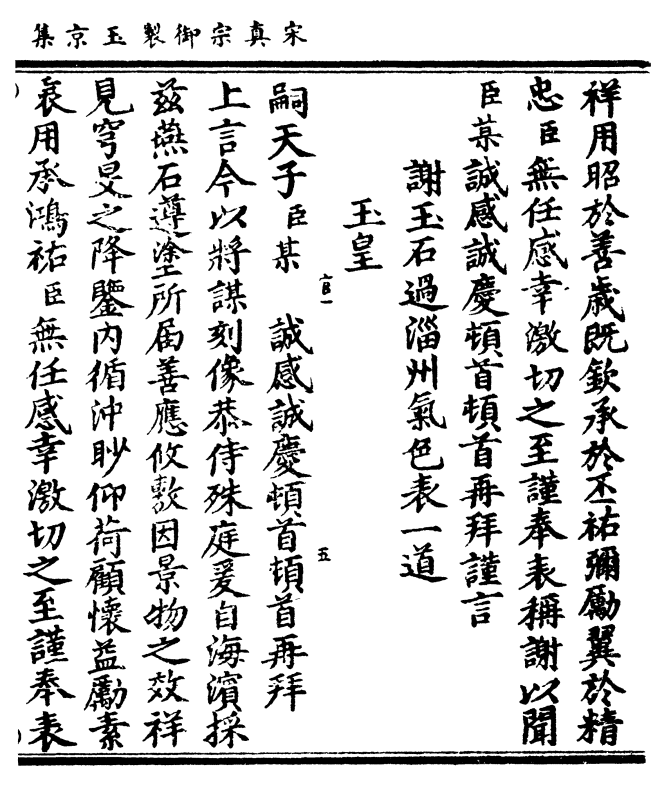 宋真宗御製玉京集
祥用昭於善歲既欽承於丕祐彌勵翼於精
忠臣無任感幸激切之至謹奉表稱謝以聞
臣某誠感誠慶頓首頓首再拜謹言
謝玉石過淄州氣色表一道
玉皇
嗣天子臣某 誠感誠慶頓首頓首再拜
上言今以將謀刻像恭侍殊庭爰自海濱採
茲燕石遵塗所屆善應攸敷因景物之效祥
見穹旻之降鑒內循沖眇仰荷顧懷益勵素
衷用承鴻祐臣無任感幸激切之至謹奉表
五